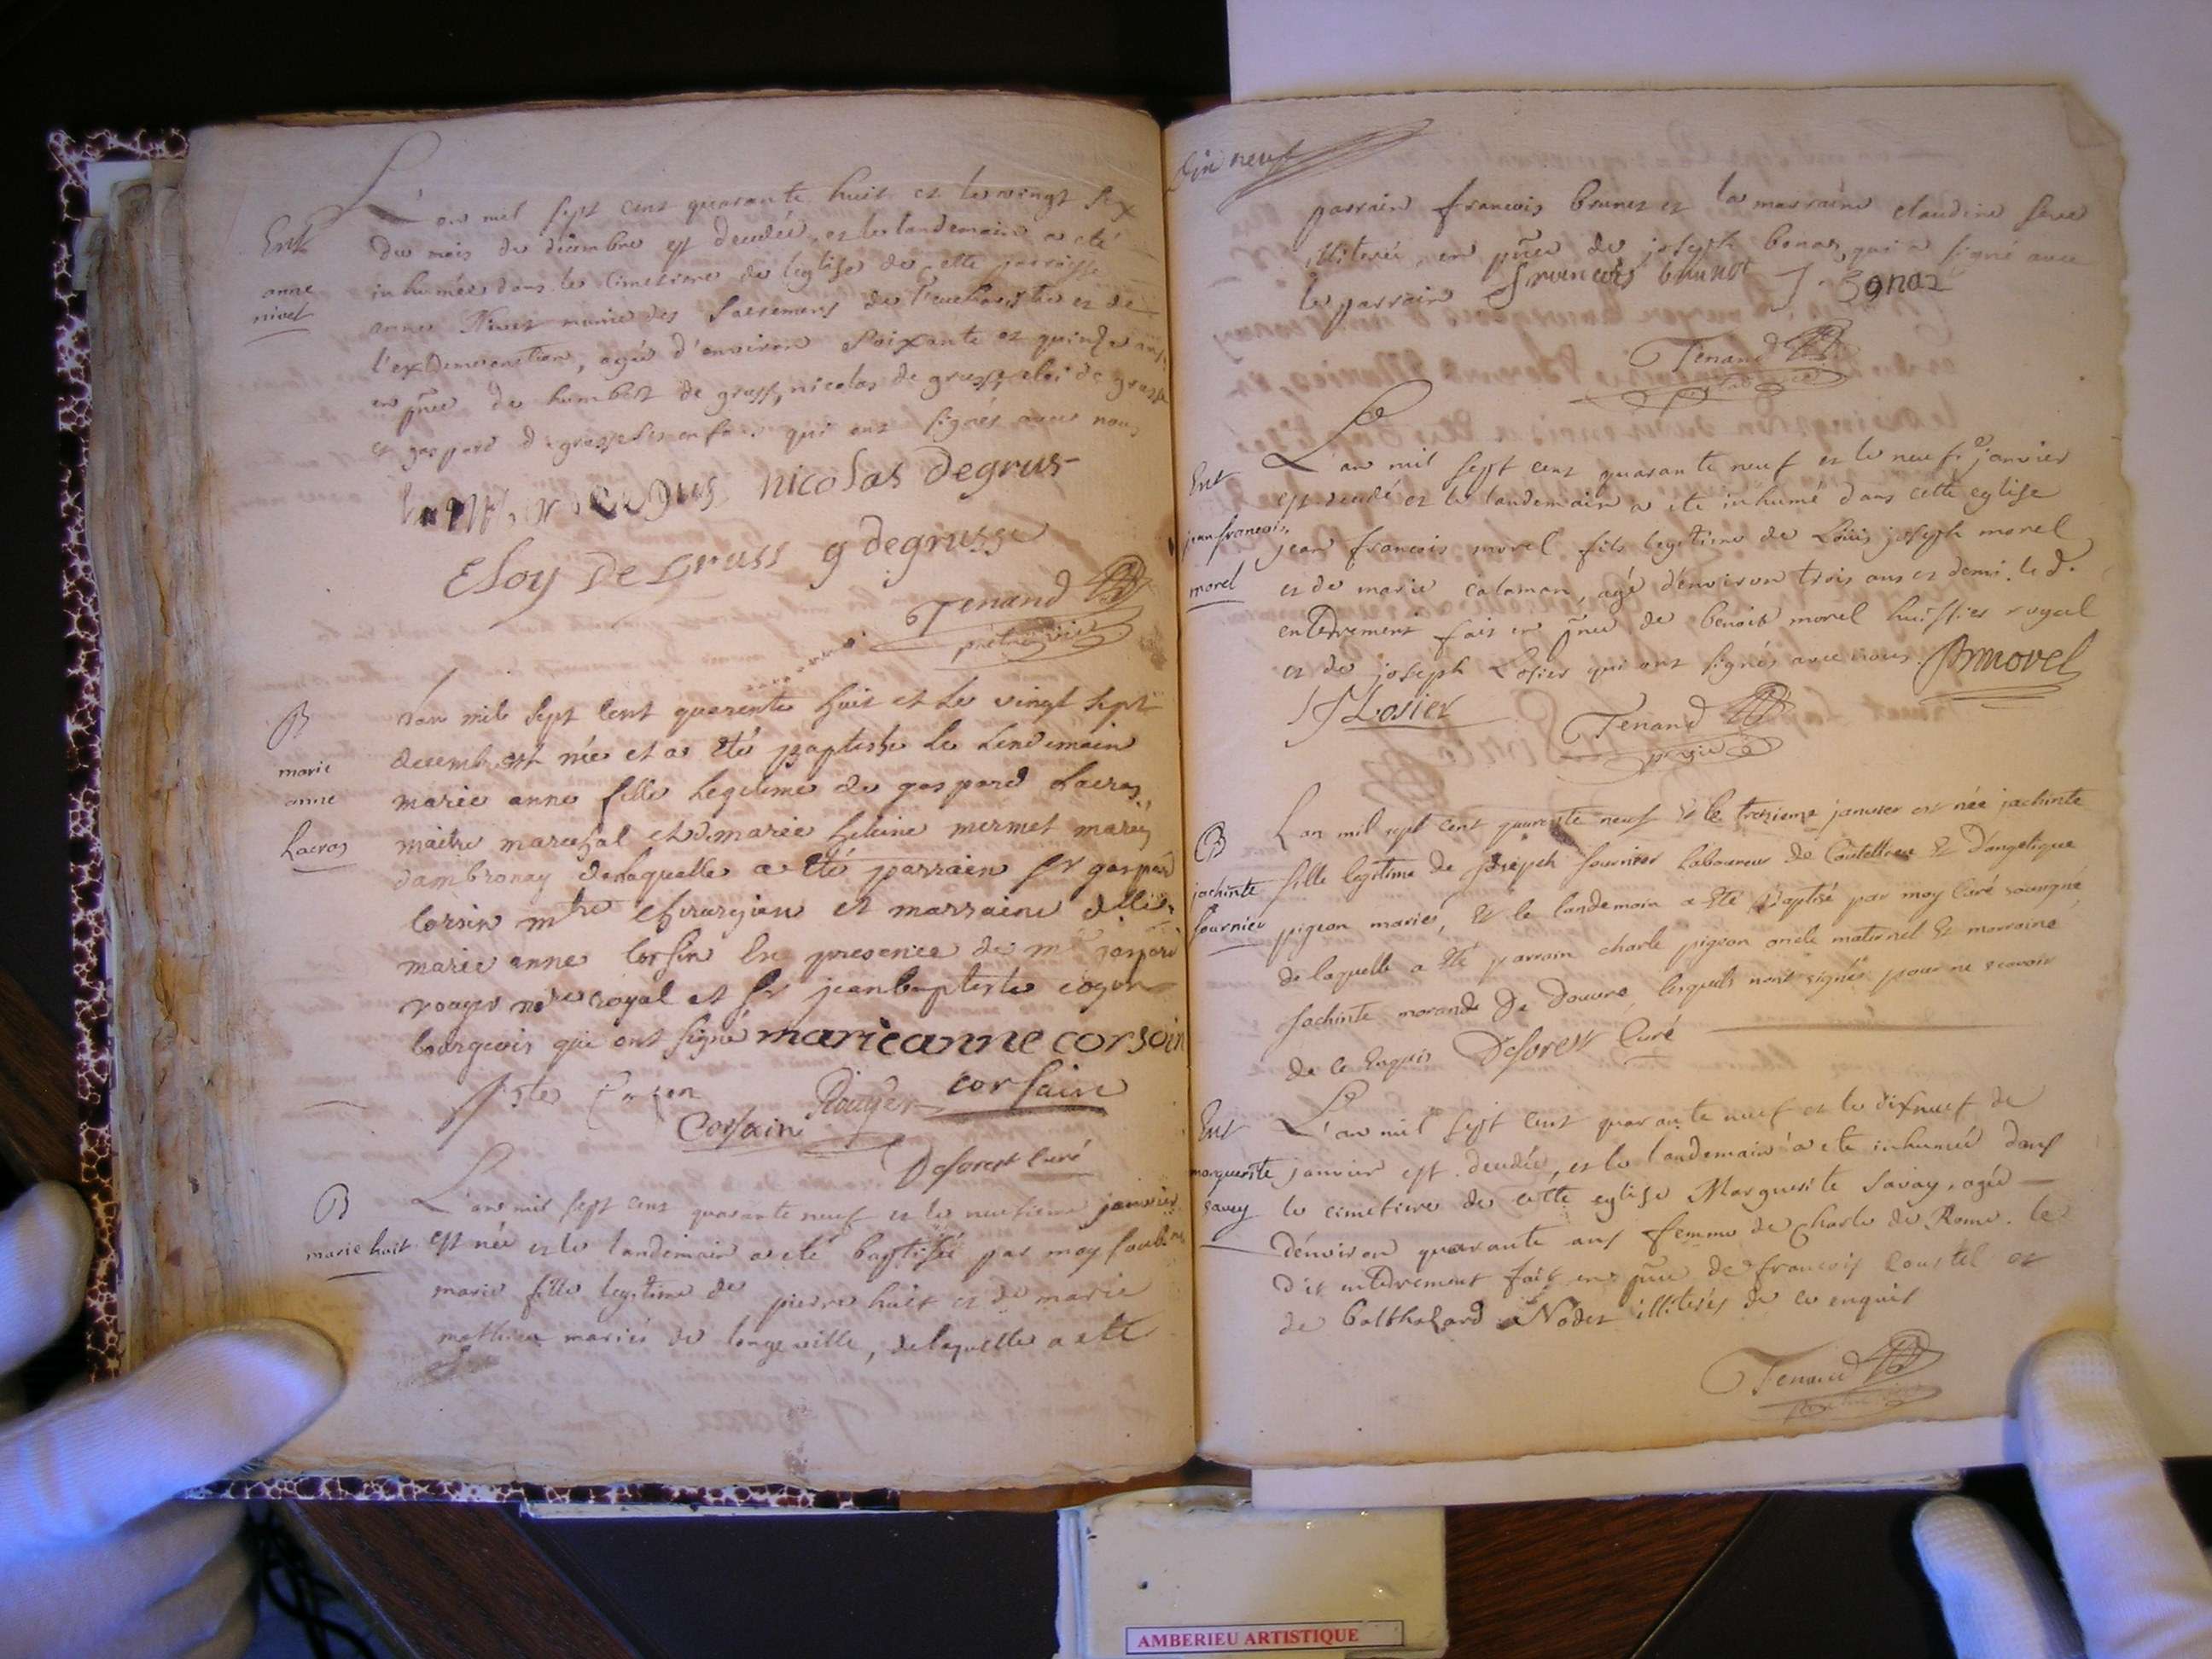 L'an mil sept cent quarante huit et le vingt six
Ent
du mois de décembre est decedée, et le landemain a eté
anne
nivet
inhumée dans le cimetiere de l'eglise de cette parroisse
anne Nivet munie des sacremens de l'eucharistie et de
l'extremeonction, agée d'environ soixante et quinze ans
en pñce de humbert de gruss, nicolas de gruss, eloi de gruss
et gaspard de grusse ses enfans qui ont signés avec nous
nicolas Degrus
Eloy De Gruss g degrusse
Tenand
prêtre vic
B
marie
anne
Lacras
Lan mil sept cent quarente huit et le vingt sept
decembre est née et a eté Baptisée le lendemain
marie anne fille legitime de gaspard Lacras
maitre marechal et de marie heleine mermet mariés
dambronay de laquelle a eté parrain sr gaspard
Corsin mtre chirurgien et marraine dlle
marie anne Corsin En presence de me gaspard
rouyer nore royal et sr jean baptiste cozon
bourgeois qui ont signé marieanne corsain
Corsain Rouyer corsain
Deforest Curé
B
marie huit
L'an mil sept cent quarante neuf et le neufieme janvier
est née et le landemain a eté baptisée par moy soubné
marie fille legitime de pierre huit et de marie
mathieu mariés de longeville, de laquelle a eté
dix neuf
parrain francois brunet et la marraine claudine
illiterée, en pñce de joseph bonaz, qui a signé avec
le parrain francois brunet J. Bonaz
Tenand
Ent
jean francois
morel
L'an mil sept cent quarante neuf et le neuf janvier
est decedé et le landemain a eté inhumé dans cette eglise
jean francois morel fils legitime de Loüis joseph morel
et de marie calaman, agé d'environ trois ans et demi. le d.
enterrement fait en pñce de benoit morel huissier royal
et de joseph Losier qui ont signés avec nous. Bmorel
J Losier Tenand
B
jachinte
fournier
Lan mil sept cent quarante neuf & le treizieme janvier est née jachinte
fille legitime de Joseph fournier laboureur de Coutelieu & D'angelique
pigeon mariés, & le landemain a eté Baptisé par moy Curé soussigné
de laquelle a eté parrain charle pigeon oncle maternel & marraine
Jachinte morande De Douvre lesquels n'ont signés pour ne scavoir
de ce Enquis Deforest Curé
Ent
marguerite
savay
L'an mil sept cent quarante neuf et le dixneuf de
janvier est decedée, et le landemain a eté inhumée dans
le cimetiere de cette eglise Marguerite Savay, agée
d'environ quarante ans femme de Charle de Rome. le
dit enterrement fait en pñce de francois Coustel et
de balthazard Nodet illiterés de ce enquis
Tenand
AMBERIEU ARTISTIQUE